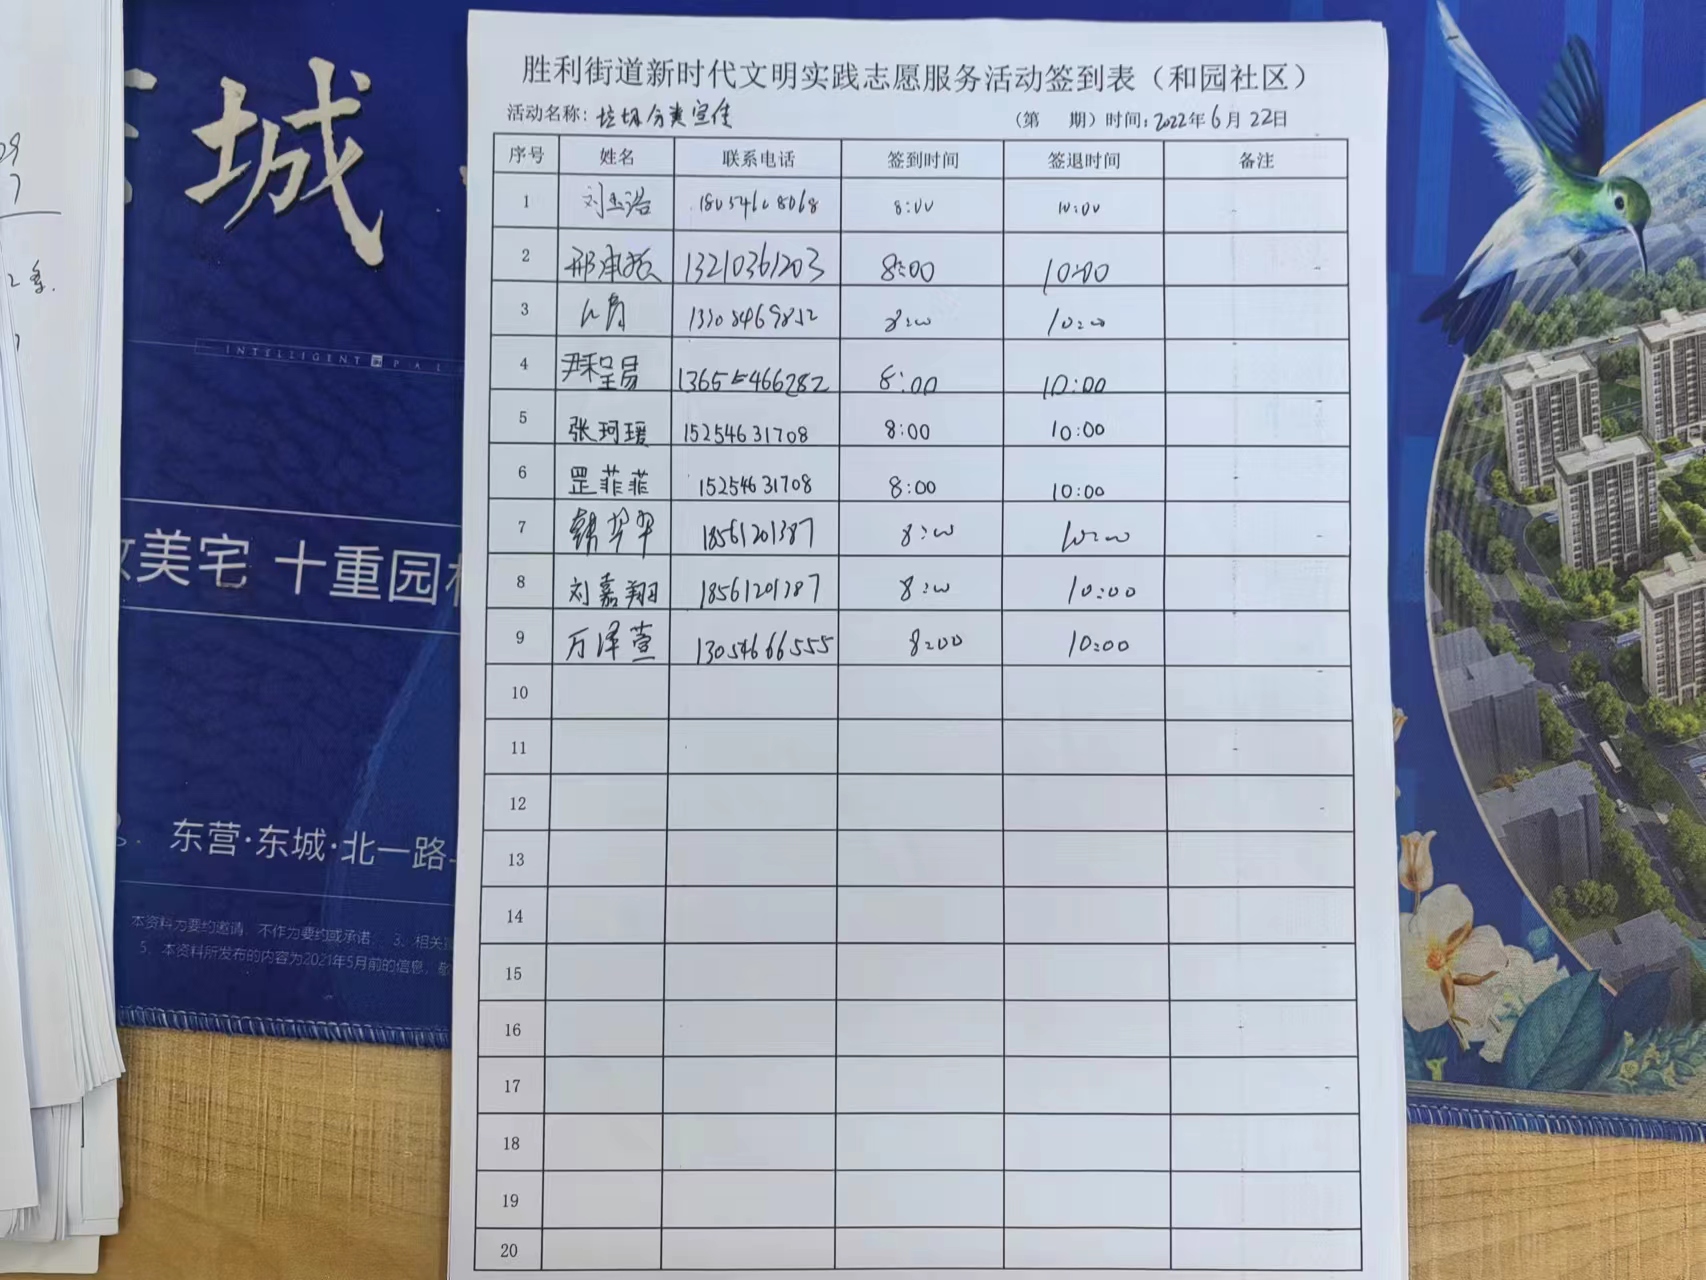 城
INTELLIGENT PAL
美宅 十重园
东营·东城·北一路
本资料为要约邀请,不作为要约或承诺 3、相关
5、本资料所发布的内容为2021年5月前的信息,敬
胜利街道新时代文明实践志愿服务活动签到表（和园社区）
活动名称：垃圾分类宣传 （第 期）时间：2022年6月22日
序号 姓名 联系电话 签到时间 签退时间 备注
1 8:00 10:00
2 邢 13210361203 8:00 10:00
3 8:00 10:00
4 尹 13655466282 8:00 10:00
5 张珂瑗 15254631708 8:00 10:00
6 罡菲菲 15254631708 8:00 10:00
7 韩翠翠 18561201387 8:00 10:00
8 刘嘉翔 18561201387 8:00 10:00
9 万泽萱 13054666555 8:00 10:00
10
11
12
13
14
15
16
17
18
19
20